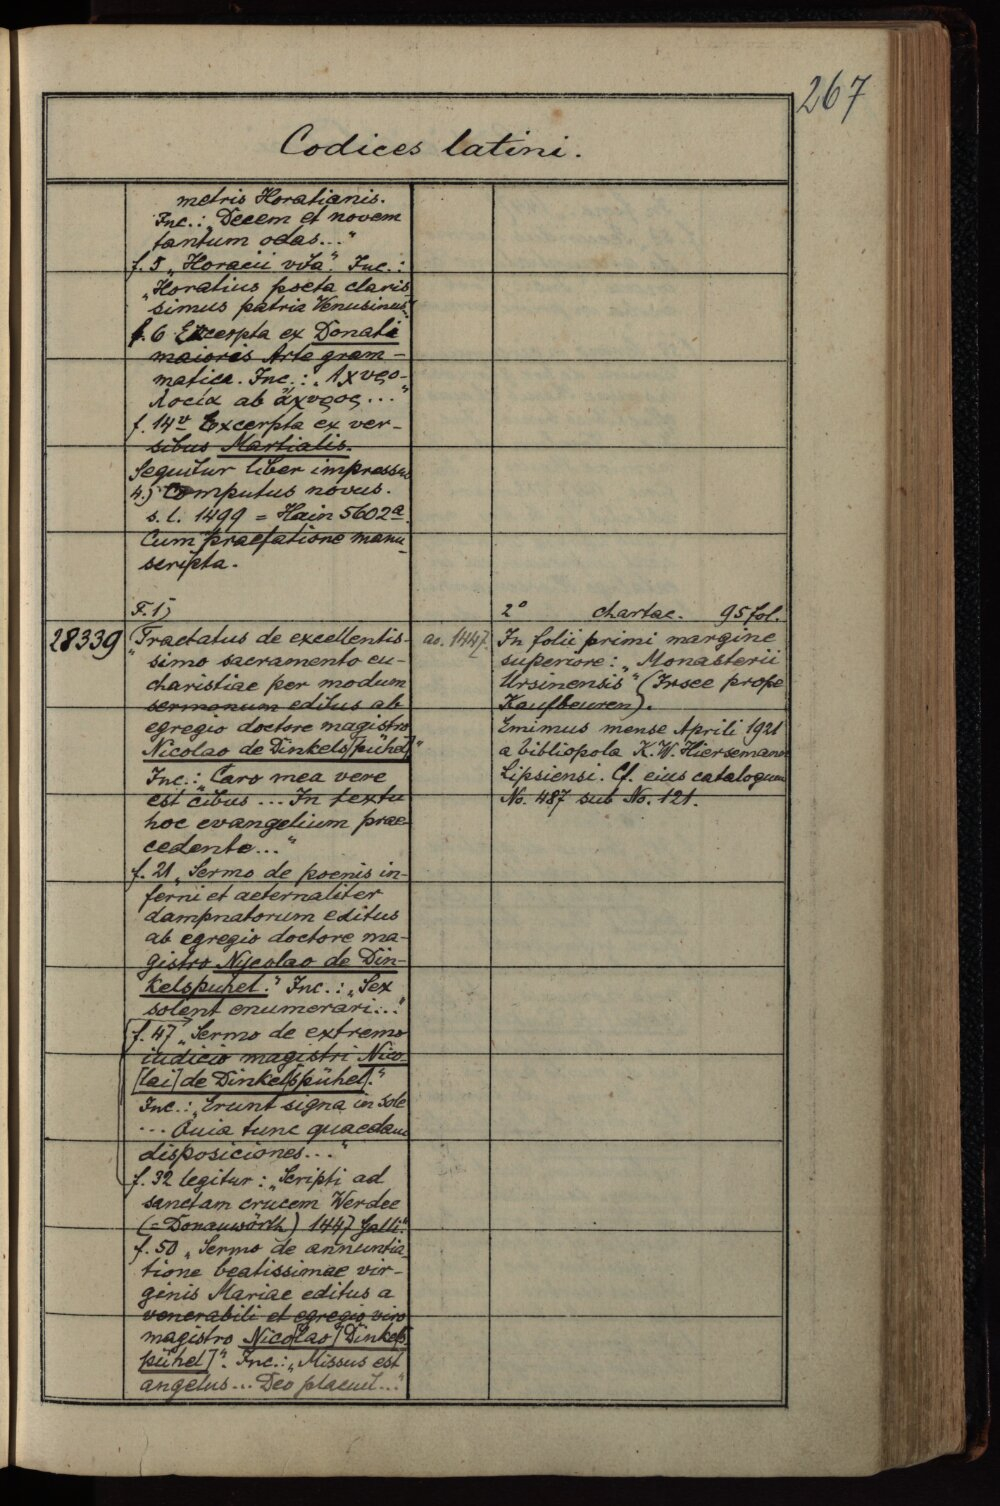 267
Codices latini.
metris Horatianis.
Inc.: „Decem et novem
tantum odas..."
f. 5 „Horacii vita." Inc.:
„Horatius poeta claris
simus patria Venusinus"
f. 6 Excerpta ex Donati
maioris Arte gram-
matica. Inc.: „Αχυρο-
λοεία ab ἄχυρος..."
f. 14v Excerpta ex ver-
sibus Martialis.
Sequitur liber impressus
4.) Computus novus.
s. l. 1499 = Hain 5602a.
Cum praefatione manu-
scripta.
F. 1)
28339
„Tractatus de excellentis-
simo sacramento eu-
charistiae per modum
sermonum editus ab
egregio doctore magistro
Nicolao de Dinkels[pühel]"
Inc.: „Caro mea vere
est cibus ... In textu
hoc evangelium prae-
cedente..."
f. 21 „Sermo de poenis in-
ferni et aeternaliter
dampnatorum editus
ab egregio doctore ma-
gistro Nycolao de Din-
kelspuhel." Inc.: „Sex
solent enumerari..."
f. 47 „Sermo de extremo
iudicio magistri Nico-
[lai] de Dinkel[spühel]."
Inc.: „Erunt signa in sole
... Quia tunc quaedam
disposiciones..."
f. 32 legitur: „Scripti ad
sanctam crucem Werdee
(= Donauwörth) 1447 Galli."
f. 50 „Sermo de annuntia
tione beatissimae vir-
ginis Mariae editus a
venerabili et egregio viro
magistro Nico[lao] Dinkels
pühel]". Inc.: „Missus est
angelus... Deo placuit..."
ao. 1447.
2° chartac. 95 fol.
In folii primi margine
superiore: „Monasterii
Ursinensis" (Irsee prope
Kaufbeuren).
Emimus mense Aprili 1921
a bibliopola K. W. Hiersemann
Lipsiensi. Cf. eius catalogum
No. 487 sub No. 121.